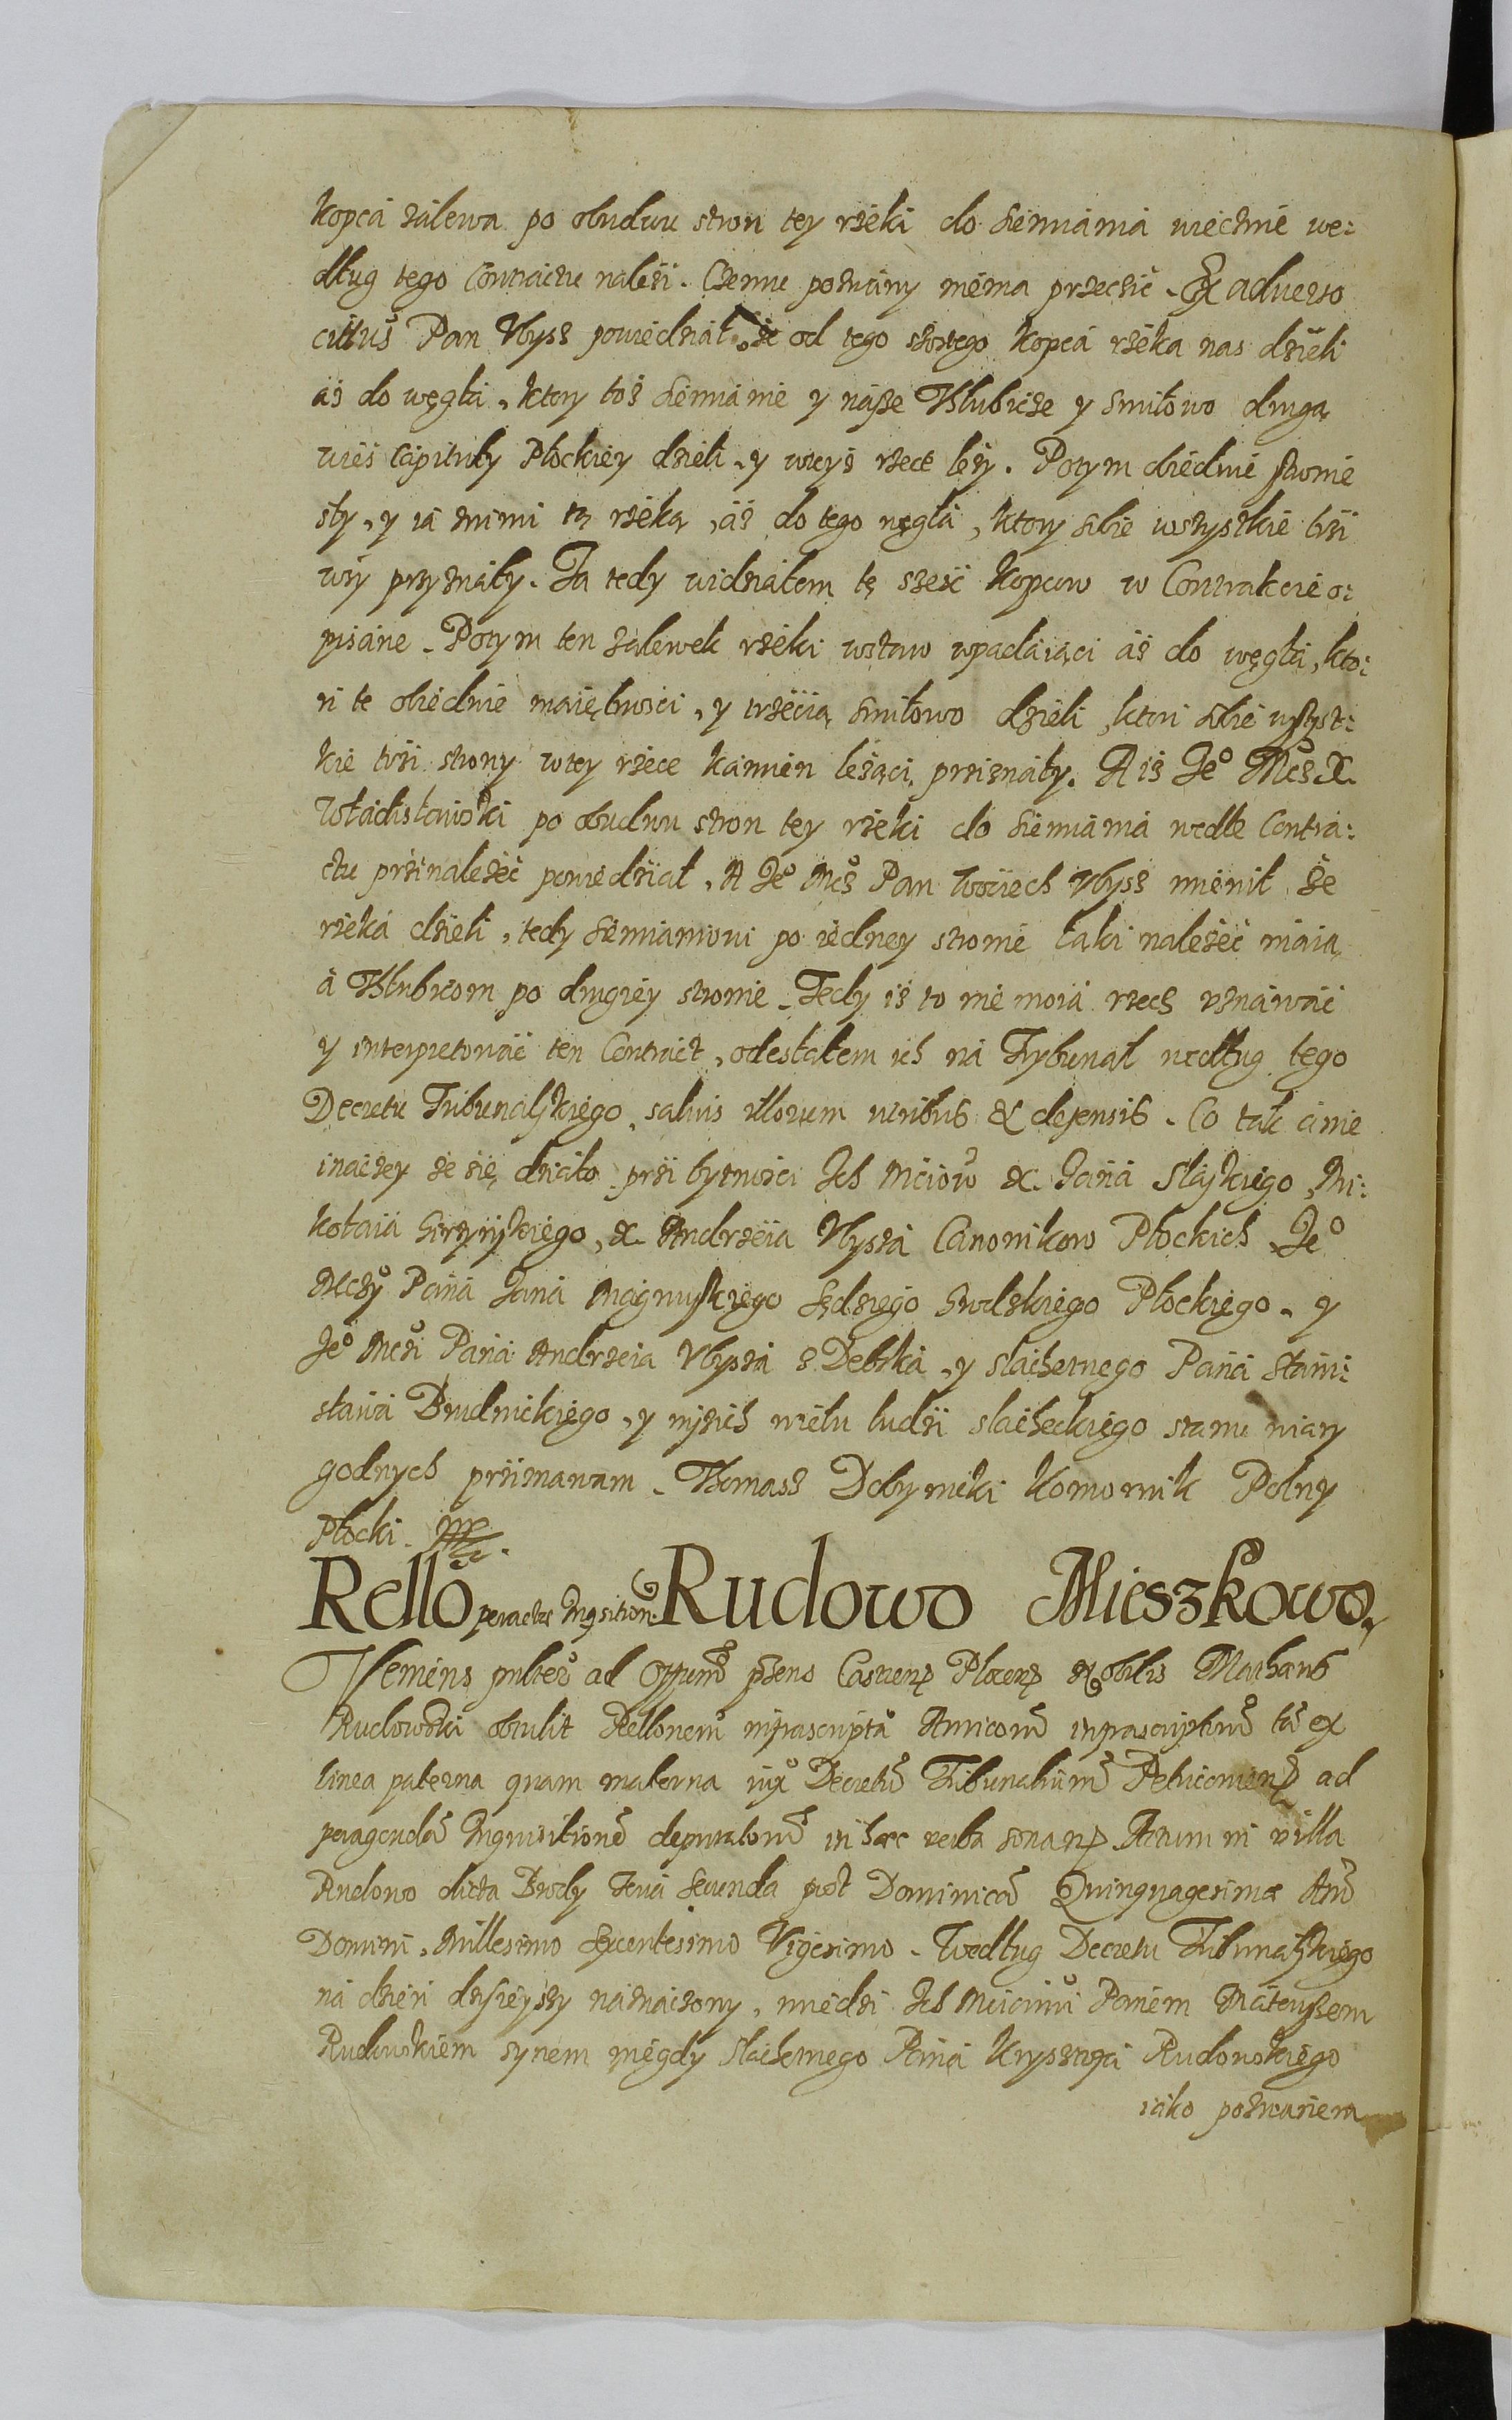 kopca zalewa po obudwu stron tey rzeki do Siemiania wiecznie we:
dług tego Contractu należi. Czemu pozwany niema przeczic. Ex adverso
citus Pan Ulysz powiedział, że od tego szostego kopca rzeka nas dzieli
aż do węgła, ktory toż Siemianie y nasze Kłubicze y Smiłowo druga
wieś Capituły Płockiey dzieli, y wteyż rzece leży. Potym obiedwie stronie
szły, y ia znimi tą rzeką, aż do tego węgła, ktory sobie wszyszkie trzi
wsy przyznały. Ja tedy widziałem tę szesć kopcow w Contrakcie o:
pisane. Potym ten zalewek rzeki wstaw wpadaiąci aż do węgła, kto:
ri te obiedwie maiętnosci, y trzecią Smiłowo dzieli, ktori sobie wszyst:
kie trzi strony wtey rzece kamien leżąci, prziznały. A iż Jeo Mcz X.
Włádisławski po obudwu stron tey rzeki do Siemiania wedle Contra:
ctu przinależeć powiedział, A Jeo Mcz Pan Woiciech Ulysz mienił że
rzeka dzieli, tedy Siemianiowi po iedney stronie łąki należeć maią,
a Kłubicom po drugiey stronie. Tedy iż to nie moia rzecz uznawać
y interpretować ten Contract, odesłałem ich na Trybunał według tego
Decretu Tribunalskiego, salvis illorum iuribus & defensis. Co tak a nie
inaczey że się działo przi bytnosci Ich Mciow X. Jana Slaskiego, Mi:
kołaia Girzyńskiego, X. Andrzeia Ulysza Canonikow Płockich, Jeo
Mczi Pana Jana Magnuskiego Sędziego Grodzkiego Płockiego, y
Jeo Mczi Pana Andrzeia Ulysza z Debska, y slachetnego Pana Stani:
sława Brudnickiego, y inszich wielu ludzi slacheckiego stanu wiary
godnych prziznawam. Thomasz Dobrynicki Komornik Polny
Płocki.
Rello peractae Inqsitionis Rudowo Mieszkowo
Veniens pnlter ad Offium prsens Castren Plocen Nobilis Mathaus
Rudowski obtulit Rellonem infrascripta Amicorum infrascriptorum ta ex
linea paterna quam materna iux Decretum Tribunalium Petricovien ad
peragendā Inquisitionē deputatorum in haec verba sonan Actum in villa
Rudowo dicta Brody feria secunda post Dominicā Quinquagesimae Anno
Domini, Millesimo Sexcentesimo Vigesimo. Według Decretu Tribunalskiego
na dzien dzisieyszy naznaczony, miedzi Ich Mciami Paniem Mateuszem
Rudowskiem synem niegdy slachetnego Pana Krysztofa Rudowskiego
iako pozwaniem